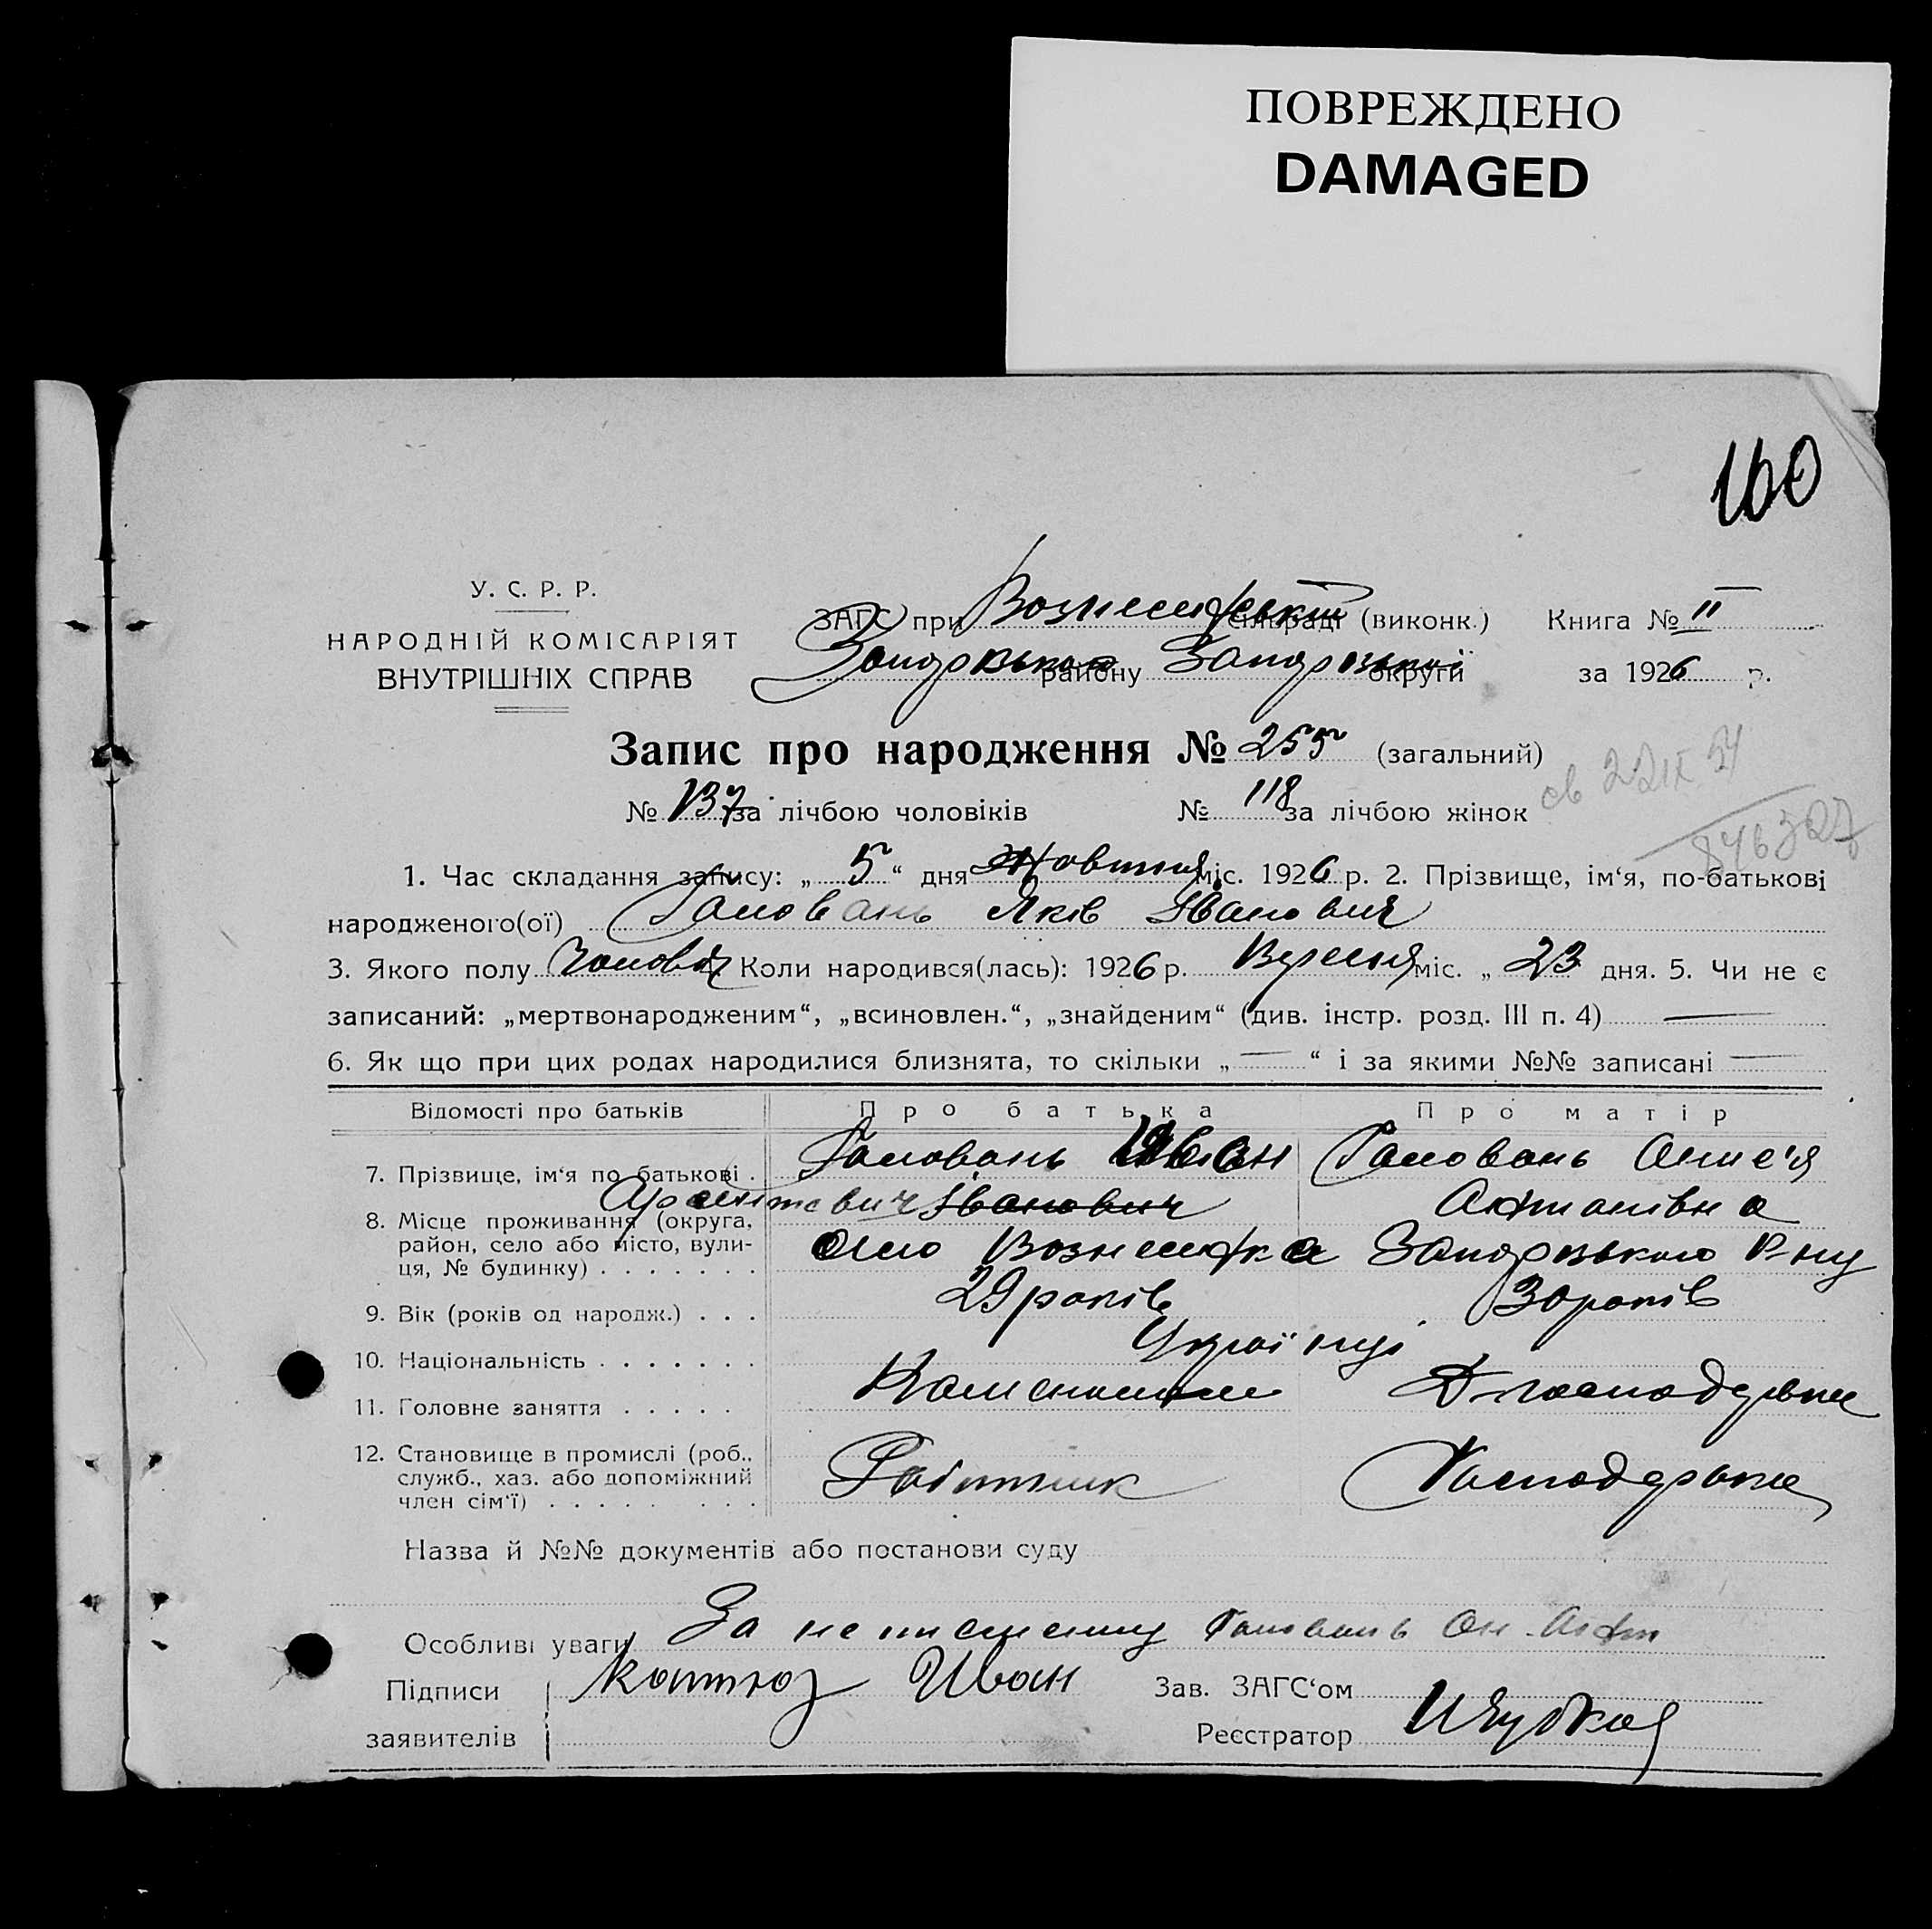 ПОВРЕЖДЕНО
DAMAGED
160
У. С. Р. Р.
НАРОДНІЙ КОМІСАРІЯТ
ВНУТРІШНІХ СПРАВ
ЗАГС при Вознесенській сільраді (виконк.) Книга № II
Запорізького району Запорізької округи за 1926 р.
Запис про народження № 255 (загальний)
№ 137 за лічбою чоловіків № 118 за лічбою жінок
1. Час складання запису: „ 5 “ дня Жовтня міс. 1926 р. 2. Прізвище, ім‘я, по-батькові
народженого(ої) Головань Яків Іванович
3. Якого полу Чоловіч Коли народився(лась): 1926 р. Вересня міс. „ 23 дня. 5. Чи не є
записаний: „мертвонародженим“, „всиновлен.“, „знайденим“ (див. інстр. розд. III п. 4) —
6. Як що при цих родах народилися близнята, то скільки „ — “ і за якими №№ записані —
Відомості про батьків Про батька Про матір
7. Прізвище, ім‘я по батькові . Головань Иван Головань
Іванович
8. Місце проживання (округа,
район, село або місто, вули-
ця, № будинку) . . . . . . . село Вознесенка Запорізького Р-ну
9. Вік (років од народж.) . . . 29 років 30 років
10. Національність . . . . . . . Українці
11. Головне заняття . . . . .
12. Становище в промислі (роб.,
служб., хаз. або допоміжний
член сім‘ї) . . . . . . . . . Робітник Господарка
Назва й №№ документів або постанови суду
Особливі уваги За неписьменну Головань
Підписи Иван Зав. ЗАГС‘ом
заявителів Реєстратор